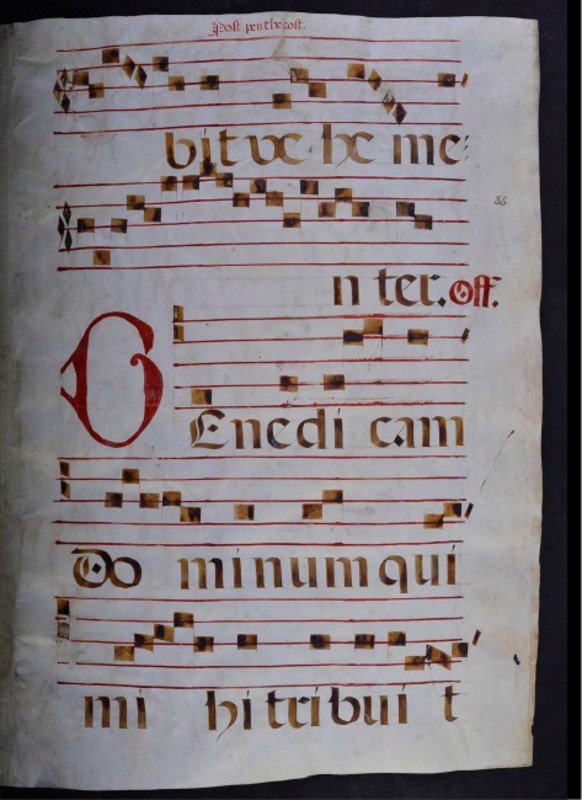 Post penthecost.
bitue he me
n ter. Off.
BEnedi cam
Do minum qui
mi hi tribui t